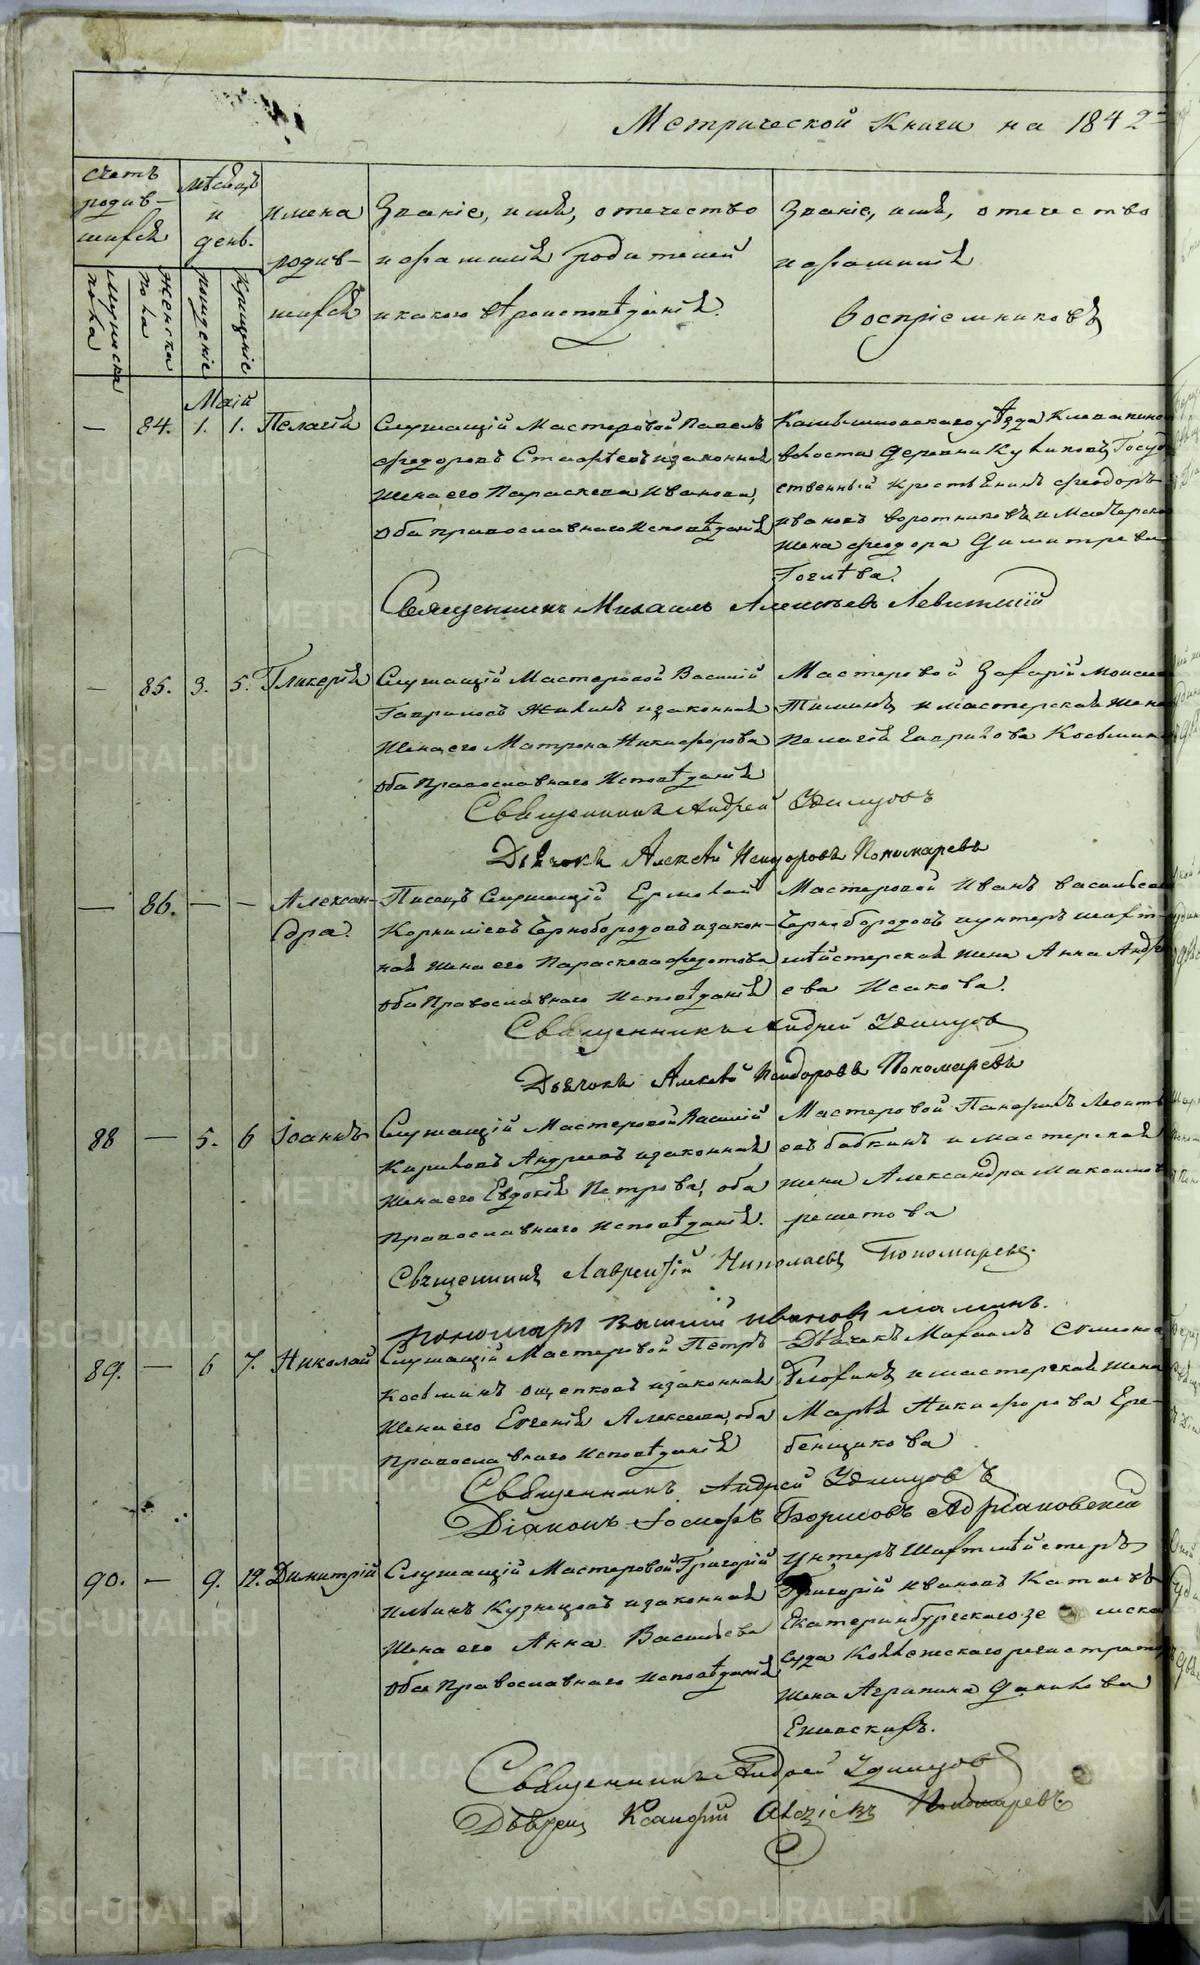 Метрической Книги на 1842й
счетъ родив-шихся
мѣсяцъ и день.
имена родив-шихся
Званіе, имя, отечество и фамилія родителей и какого вѣроисповѣданія.
Званіе, имя, отечество и фамилія воспріемниковъ
мужеска пола
женска пола
рожденіе
крещеніе
Маій
— 84. 1. 1. Пелагія
Служащій Мастеровой Павелъ
Федоровъ и законная
жена его Параскева Иванова,
оба православнаго Исповѣданія
Камышловскаго уѣзда
волости Деревни Куликовъ
ственный крестьянинъ Феодоръ
Ивановъ Воротниковъ и Мастерска
жена Феодора Димитрева
Священникъ Михаилъ Алексѣевъ Левитскій
— 85. 3. 5. Гликерія
Служащій Мастеровой Василій
Гавриловъ Жилинъ и законная
жена его Матрона Никифорова
оба Православнаго Исповѣданія
Мастеровой Захарій Моисее
Тиминъ и мастерская жена
Пелагія Гаврилова Косьмина
Священникъ Андрей Удинцовъ
Дьячокъ Алексѣй Исидоровъ Пономаревъ
— 86. — — Алексан-дра.
Писецъ Служащій Ермолай
Корниліевъ Чернобородовъ и закон-
ная жена его Параскева Федотова
оба Православнаго Исповѣданія
Мастеровой Иванъ Васильевъ
Чернобородовъ и унтеръ шихт-
мѣйстерская жена Анна Андре
ева Исакова.
Священникъ Андрей Удинцовъ
Дьячокъ Алексѣй Исидоровъ Пономаревъ
88 — 5. 6 Іоаннъ
Служащій Мастеровой Василій
Кириловъ Андреевъ и законная
жена его Евдокія Петрова, оба
Православнаго Исповѣданія.
Мастеровой Панфилъ Леонть
евъ Бабкинъ и мастерская
жена Александра Максимов
Решетова
Священникъ Лаврентій Николаевъ Пономаревъ.
Пономарь Василій Ивановъ Маминъ.
89. — 6 7. Николай
Служащій Мастеровой Петръ
Косьминъ Ощепковъ и законная
жена его Евгенія Алексеева, оба
Православнаго Исповѣданія
Дьячекъ Михаилъ Симонов
и мастерская жена
Марья Никифорова Гре-
бенщикова
Священникъ Андрей Удинцовъ
Діаконъ Іосифъ Борисовъ Адріановскій
90. — 9. 12. Димитрій
Служащій Мастеровой Григорій
Ильинъ Кузнецовъ и законная
жена его Анна Васильева
оба Православнаго Исповѣданія
Унтеръ Шихтмѣйстеръ
Григорій Ивановъ Катаевъ
Екатеринбургскаго земска
Суда Коллежскаго регистратор
жена Агрипина Данилова
Священникъ Андрей Удинцовъ
Пономаревъ.
METRIKI.GASO-URAL.RU